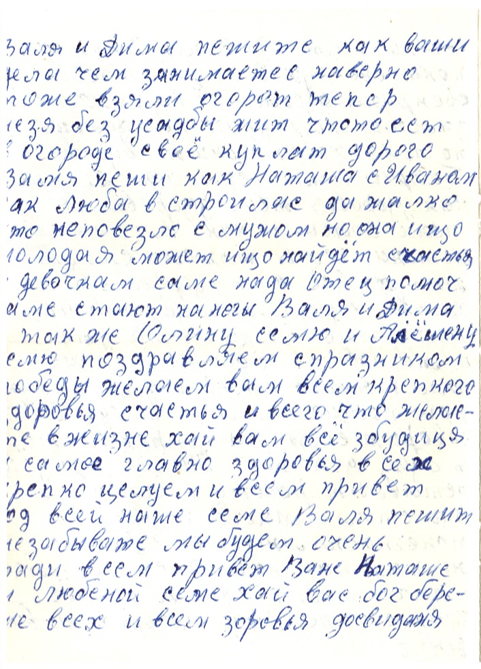 Валя и Дима пешите как ваши
дела чем занимаетес наверно
тоже взяли огорот тепер
незя без усадбы жит чтото ест
в огороде своё куплат дорого
Валя пеши как Наташа с Иваном
как Люба встроилас да жалко
што неповезло с мужом но она ищо
молодая может ищо найдёт счастья
девочкам саме нада отец помоч
саме стают на ногы Валя и Дима
также Олину семю и Алёшену
семю поздравляем спразником
победы желаем вам всем крепкого
здоровья счастья и всего что желае-
те вжизне хай вам всё збудиця
самое главно здоровья всех
крепко целуем и всем привет
од всей наше семе Валя пешит
незабывате мы будем очень
ради всем привет Ване Наташе
и любеной семе хай вас бог бере-
же всех и всем зоровья досвидания